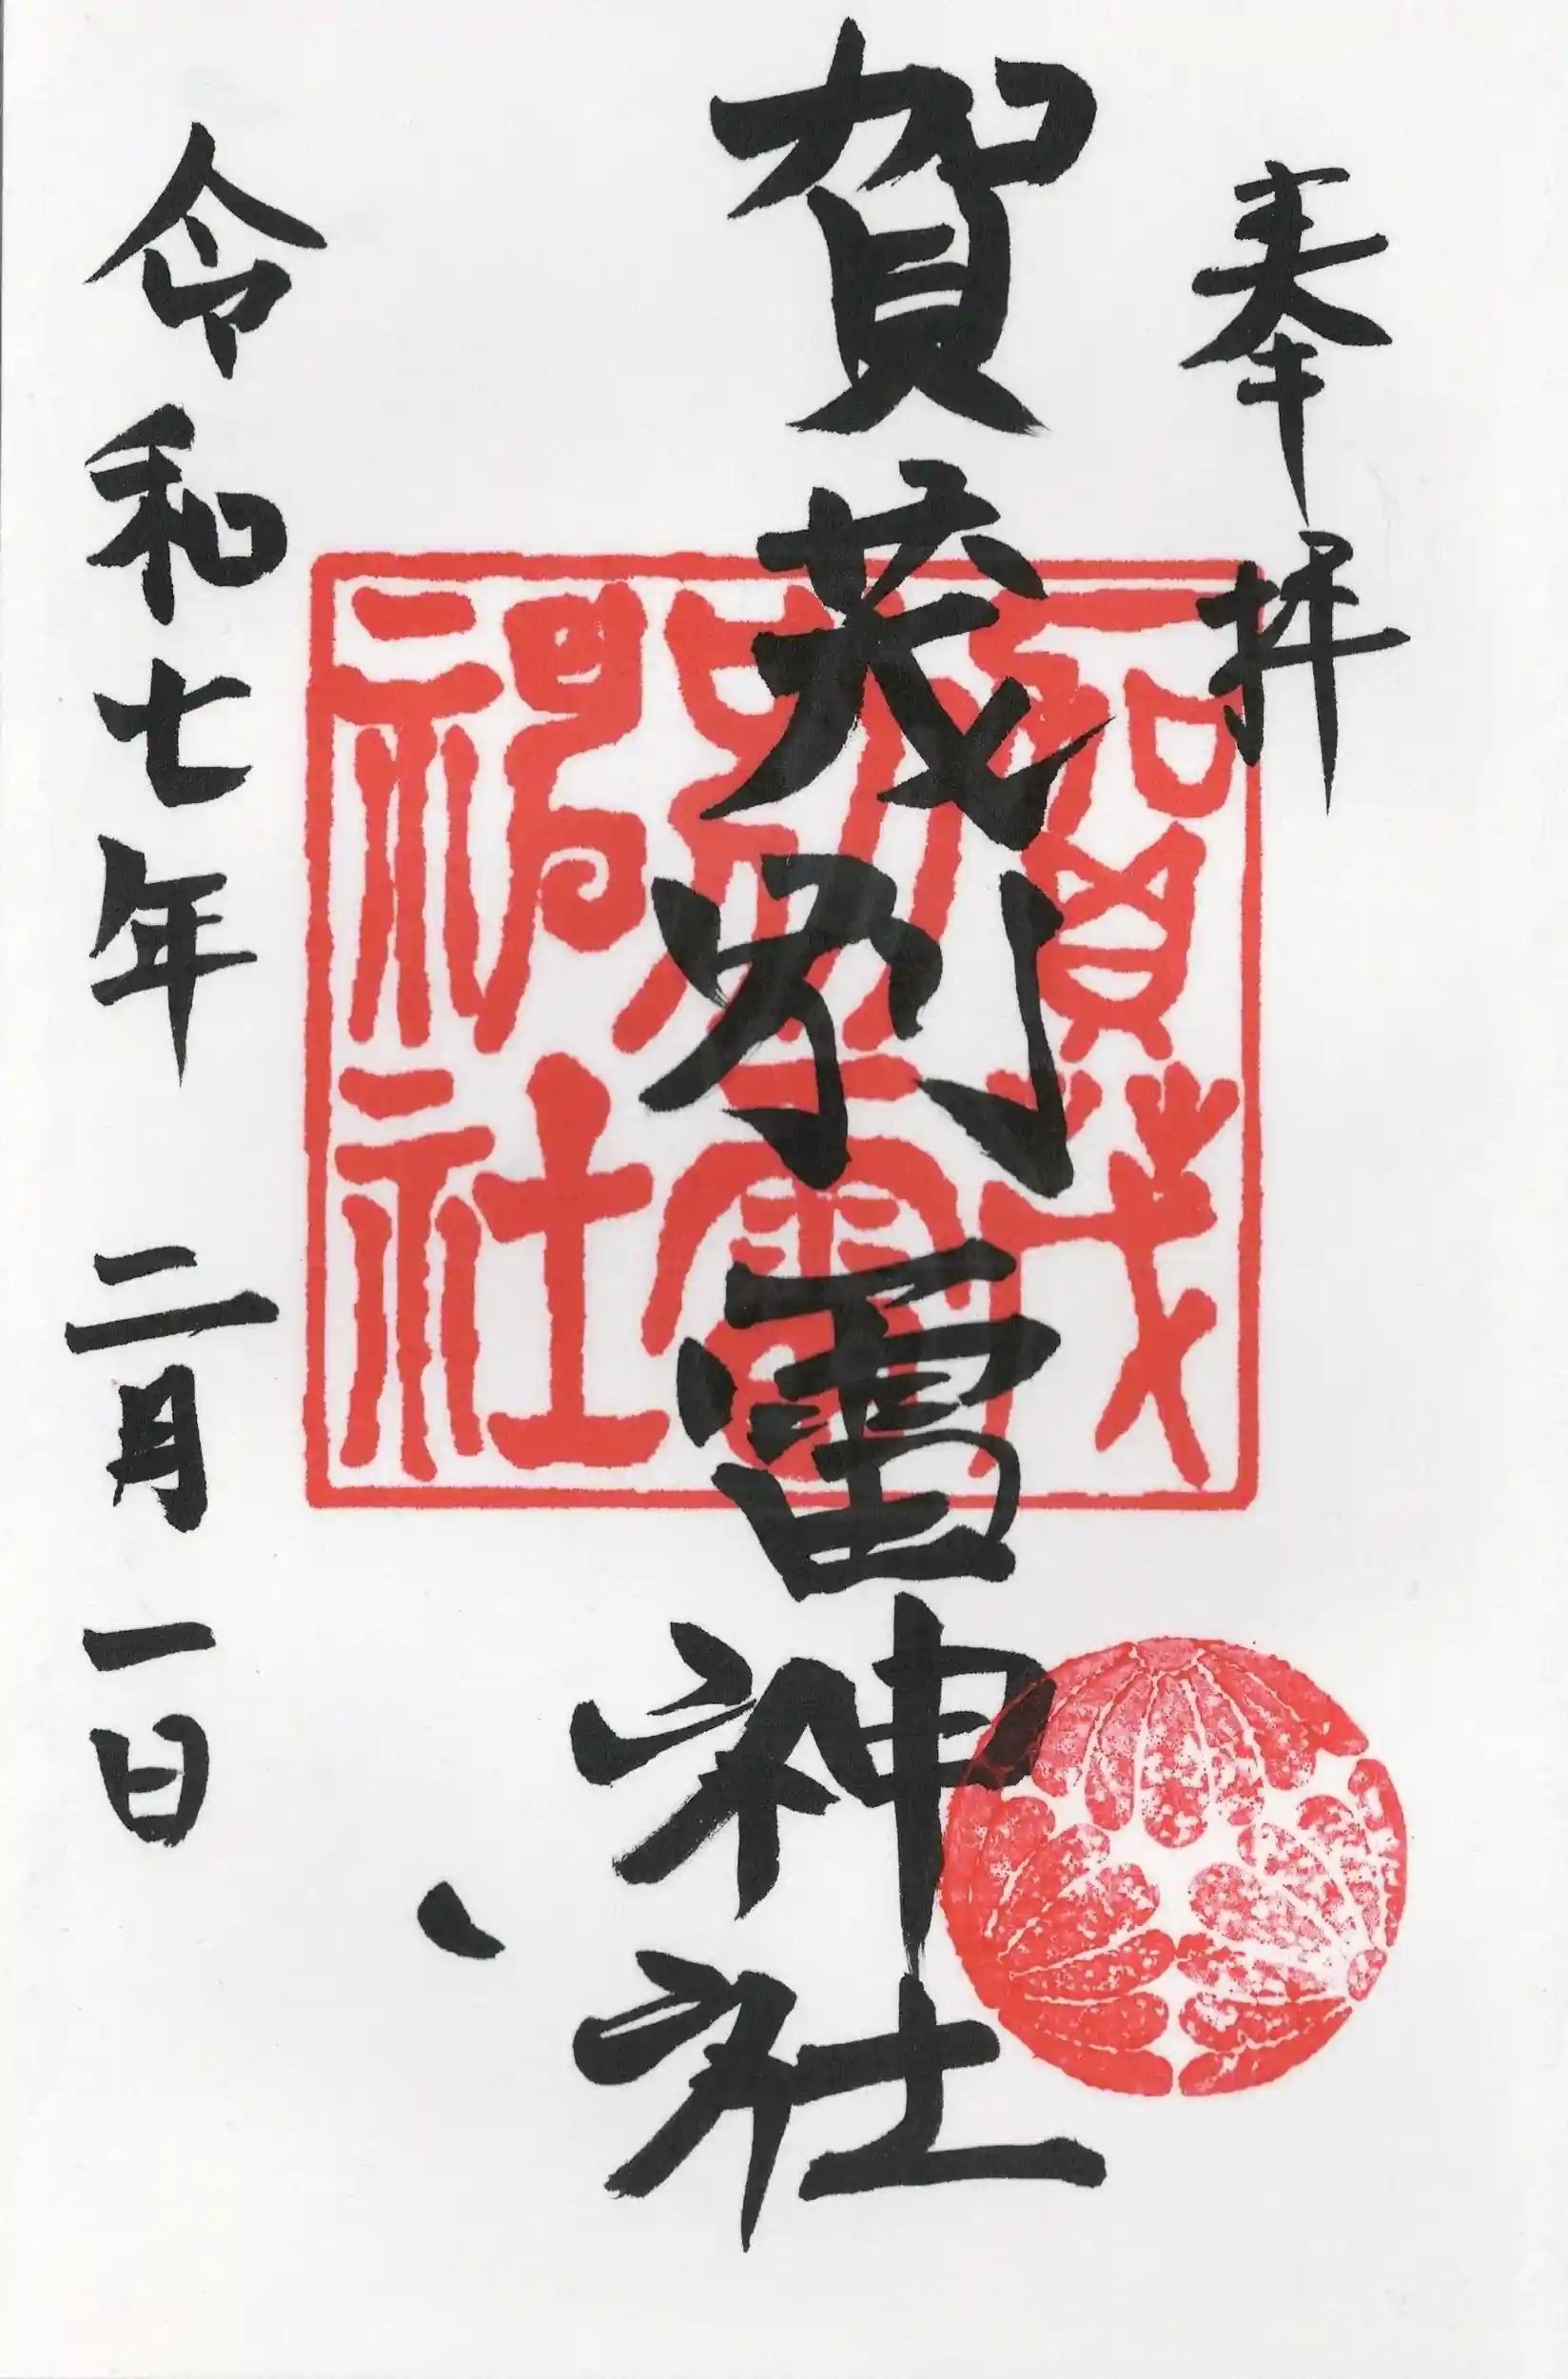 奉拝
賀茂別雷神社
令和七年 二月 一日
賀茂
別雷
神社